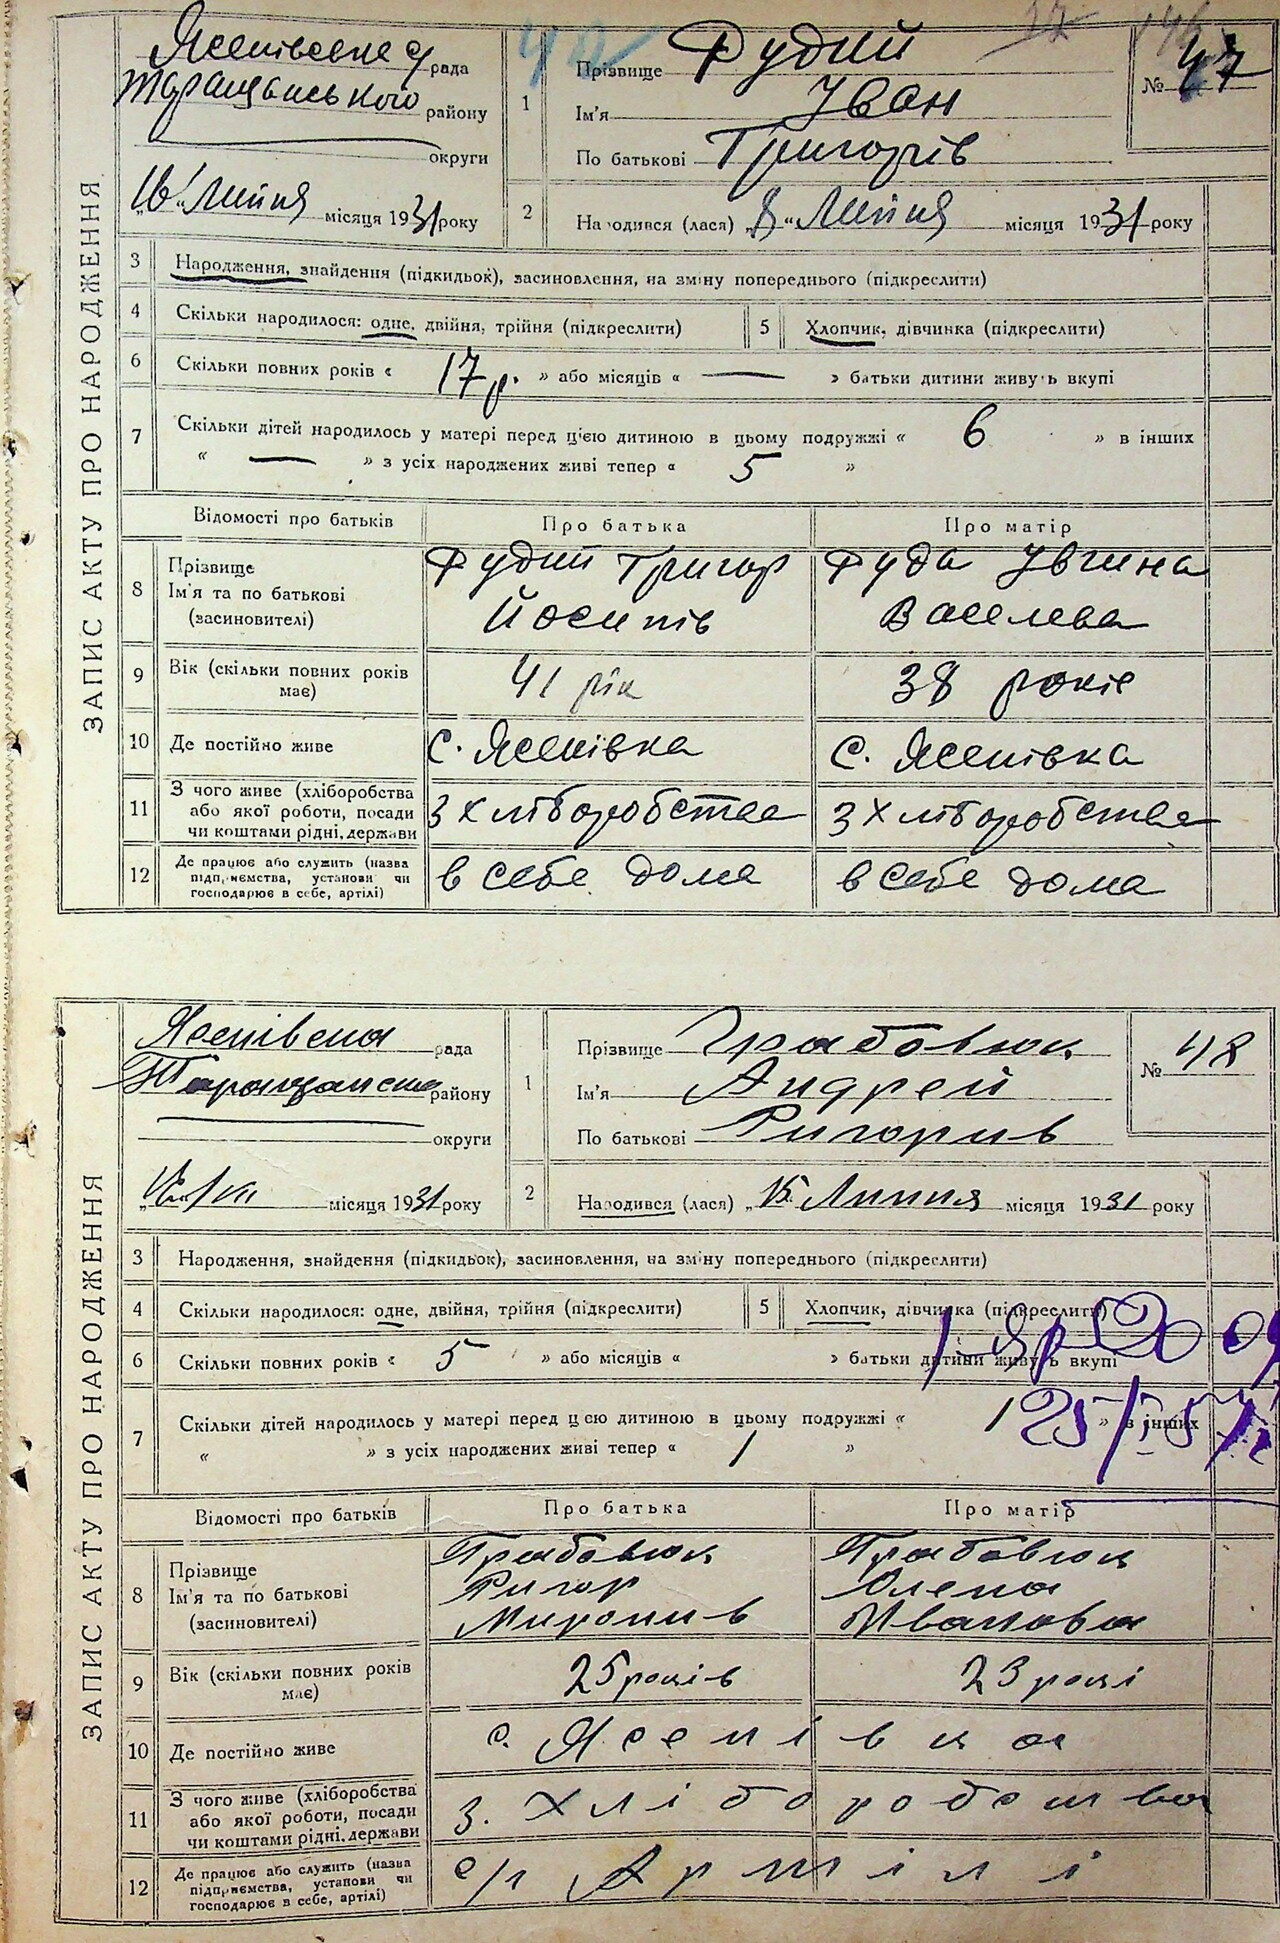 ЗАПИС АКТУ ПРО НАРОДЖЕННЯ
Ясенівська рада
Таращанського району
округи
„16“ Липня місяця 1931 року
1
Прізвище Рудий
Ім'я Іван
По батькові Григорів
№ 47
2
Народився (лася) „8“ Липня місяця 1931 року
3 Народження, знайдення (підкидьок), засиновлення, на зміну попереднього (підкреслити)
4 Скільки народилося: одне, двійня, трійня (підкреслити) 5 Хлопчик, дівчинка (підкреслити)
6 Скільки повних років « 17 р. » або місяців « — » батьки дитини живуть вкупі
7 Скільки дітей народилось у матері перед цією дитиною в цьому подружжі « 6 » в інших
« — » з усіх народжених живі тепер « 5 »
Відомості про батьків Про батька Про матір
8 Прізвище Ім'я та по батькові (засиновителі) Рудий Григор Йосипів Руда Ювгина Василева
9 Вік (скільки повних років має) 41 рік 38 років
10 Де постійно живе с. Ясенівка с. Ясенівка
11 З чого живе (хліборобства або якої роботи, посади чи коштами рідні, держави З хліборобства З хліборобства
12 Де працює або служить (назва підприємства, установи чи господарює в себе, артілі) в себе дома в себе дома
ЗАПИС АКТУ ПРО НАРОДЖЕННЯ
Ясенівська рада
району
округи
місяця 1931 року
1
Прізвище Грабовюк
Ім'я Андрей
По батькові Ригорив
№ 48
2
Народився (лася) „15“ Липня місяця 1931 року
3 Народження, знайдення (підкидьок), засиновлення, на зміну попереднього (підкреслити)
4 Скільки народилося: одне, двійня, трійня (підкреслити) 5 Хлопчик, дівчинка (підкреслити)
6 Скільки повних років « 5 » або місяців « » батьки дитини живуть вкупі
7 Скільки дітей народилось у матері перед цією дитиною в цьому подружжі « 1 » в інших
« » з усіх народжених живі тепер « 1 »
Відомості про батьків Про батька Про матір
8 Прізвище Ім'я та по батькові (засиновителі) Грабовюк Ригор Миронив Грабовюк Олена Иванова
9 Вік (скільки повних років має) 25 років 23 рокі
10 Де постійно живе с. Ясенівка
11 З чого живе (хліборобства або якої роботи, посади чи коштами рідні, держави З. Хліборобства
12 Де працює або служить (назва підприємства, установи чи господарює в себе, артілі) с/г Артілі